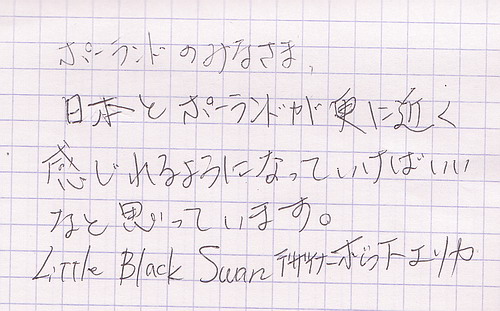 ポーランドのみなさま、
日本とポーランドが更に近く
感じれるようになっていけばいい
なと思っています。
Little Black Swan デザイナー エリカ